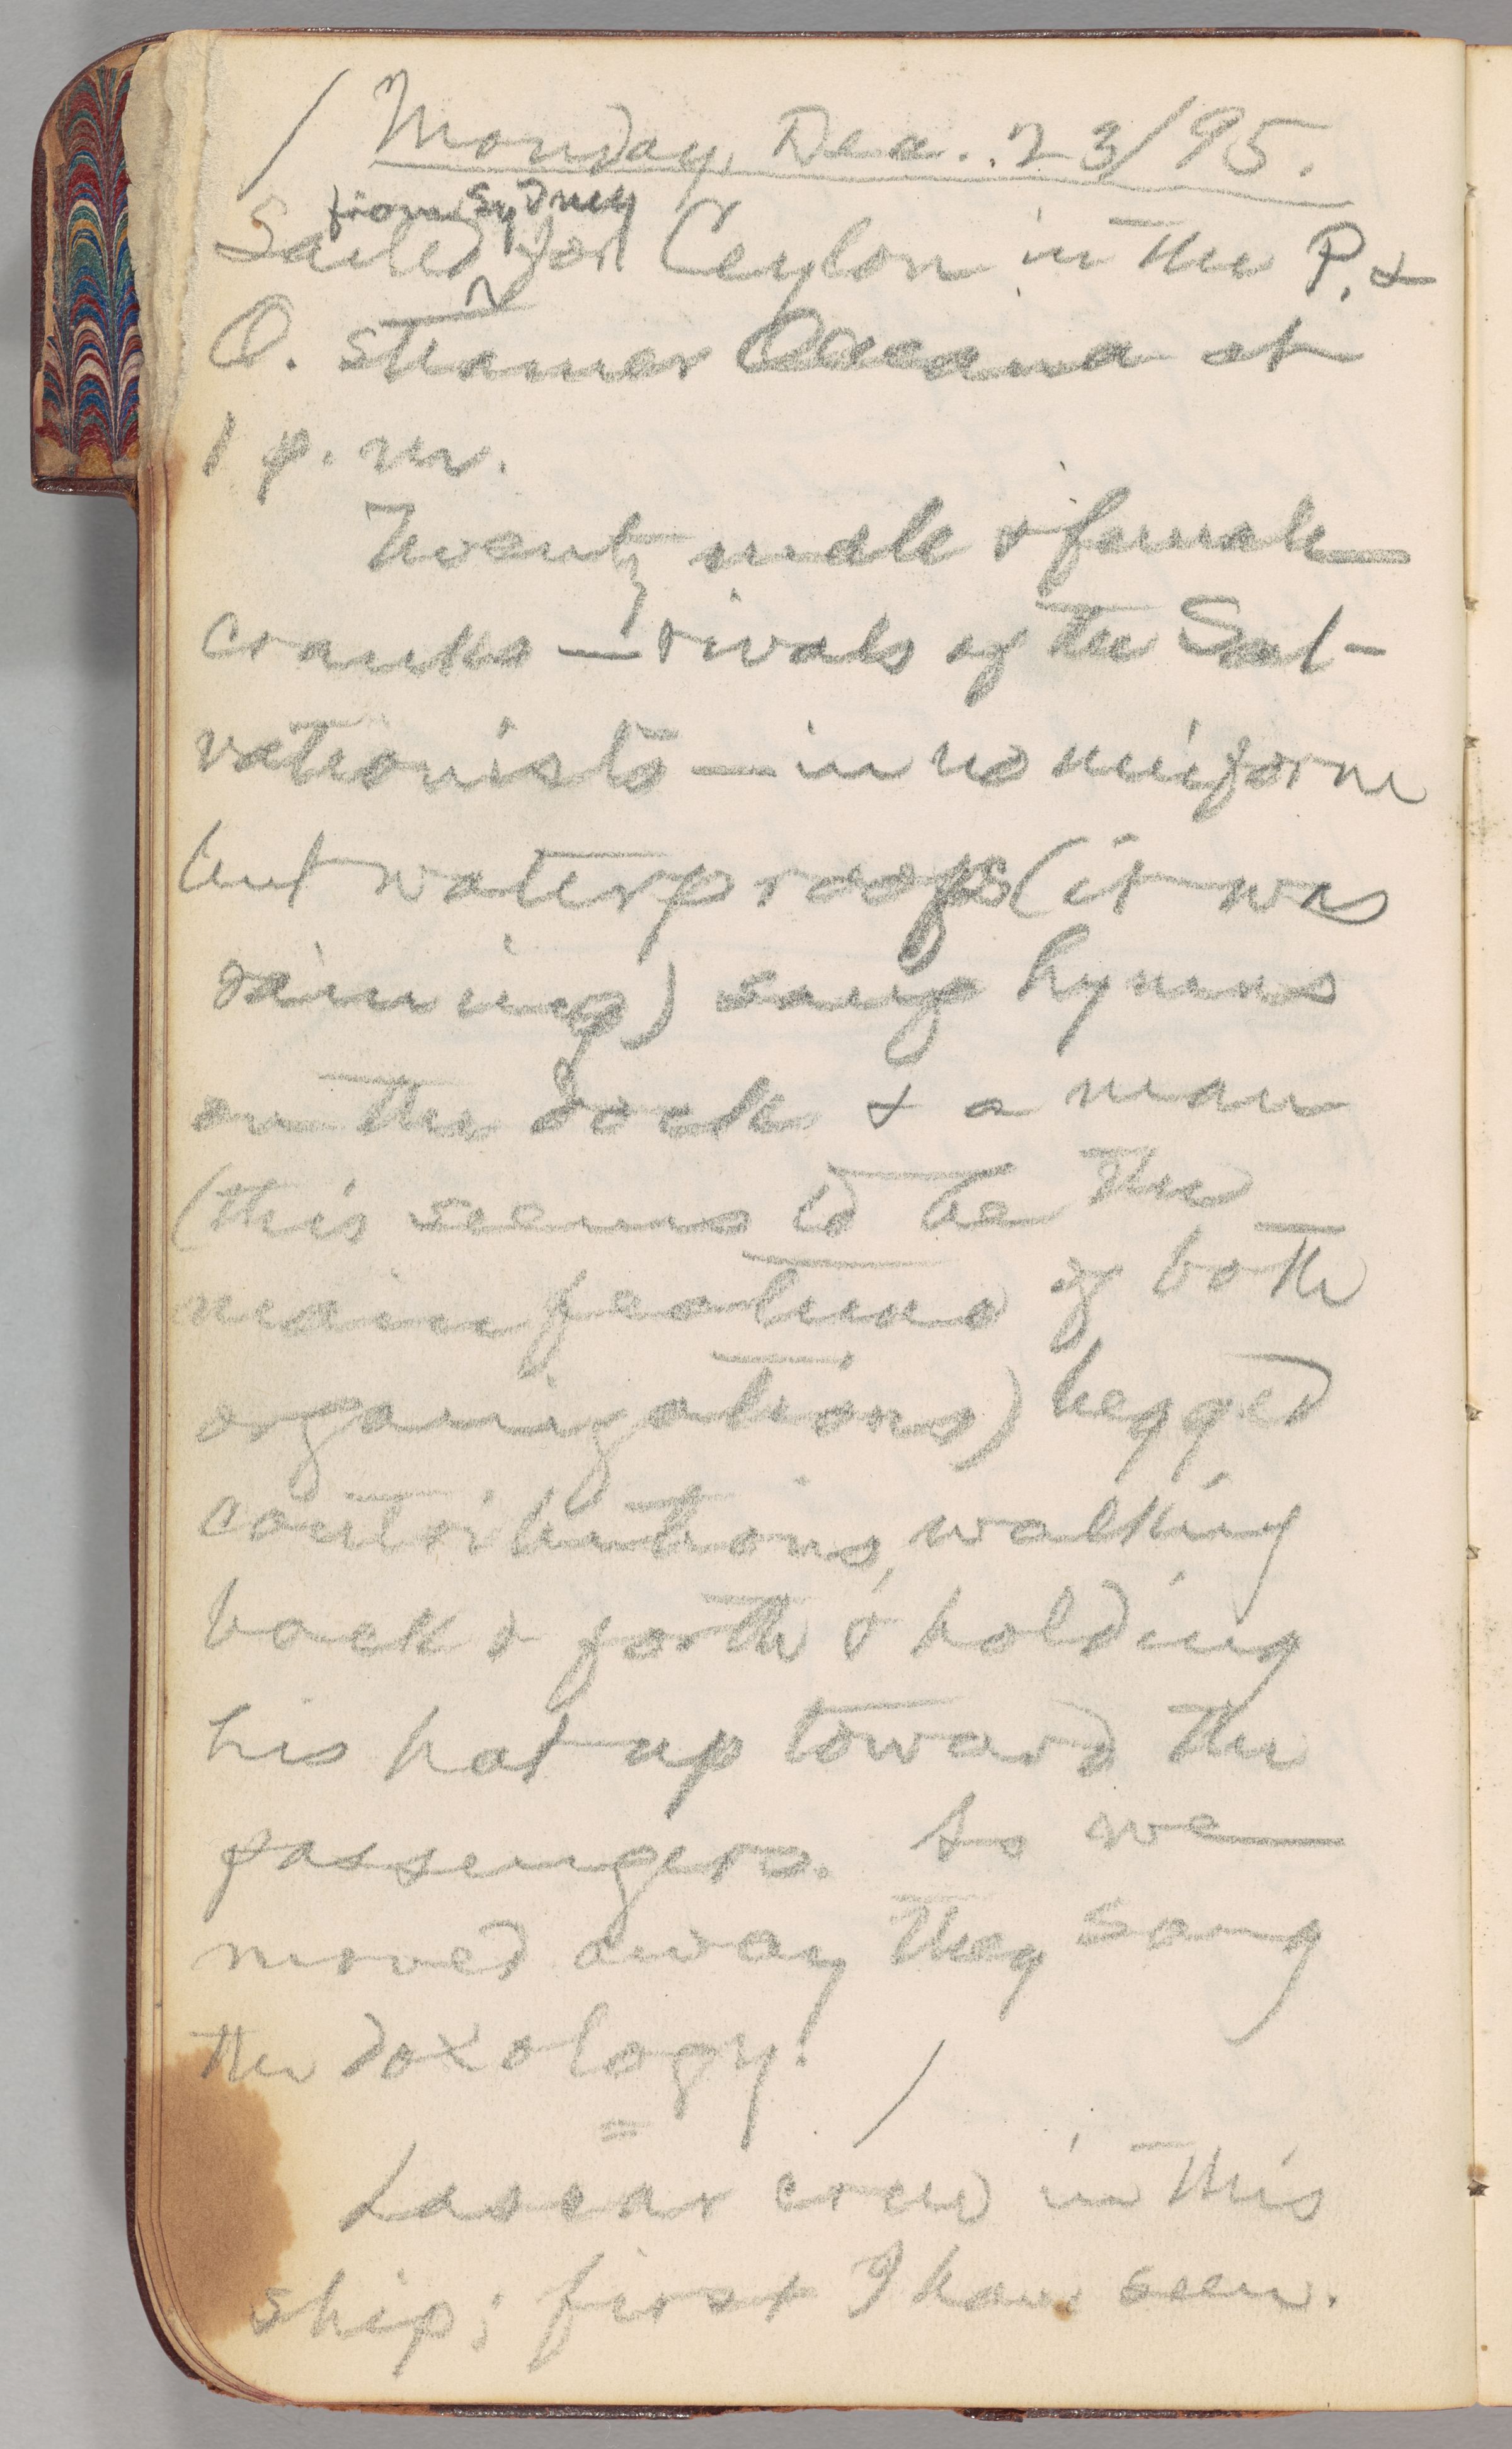 / Monday, Dec. 23/95.
from Sydney
Sailed ^ for Ceylon in the P. &
O. steamer Oceana at
1 p.m.
Twenty male & female
cranks — rivals of the Sal-
vationists — in no uniform
but waterproofs (it was
raining) sang hymns
on the dock & a man
(this seems to be the
main features of both
organizations) begged
contributions, walking
back & forth & holding
his hat up toward the
passengers. As we
moved away they sang
the doxology. /
=
Lascar crew in this
ship; first I have seen.